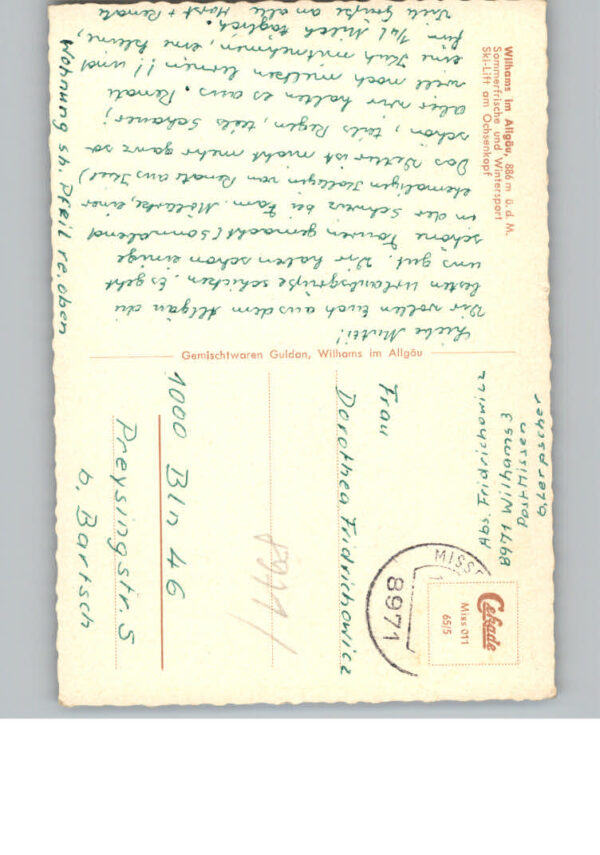 Wilhams im Allgäu, 886 m ü. d. M.
Sommerfrische und Wintersport
Ski-Lift am Ochsenkopf
Liebe Mutti!
Wir wollen Euch aus dem Allgäu die
besten Urlaubsgrüße schicken. Es geht
uns gut. Wir haben schon einige
schöne Touren gemacht (Sonnabend
in der Schweiz bei Fam. einer
ehemaligen Kollegin von Renate aus Kiel)
Das Wetter ist nicht mehr ganz so
schön, teils Regen, teils Schauer;
aber wir halten es aus. Renate
will noch melken lernen!! und
eine Kuh mitnehmen, eine kleine,
für 1/2 l Milch täglich.
Viele Grüße an alle Horst + Renate
Wohnung sh. Pfeil re. oben
Gemischtwaren Guldan, Wilhams im Allgäu
Abs. Fridrichowicz
8971 Wilhams 3
Post Missen
b. Lerpscher
Cekade
Miss 011
65/5
MISSE
8971
Frau
Dorothea Fridrichowicz
1000 Bln 46
Preysingstr. 5
b. Bartsch